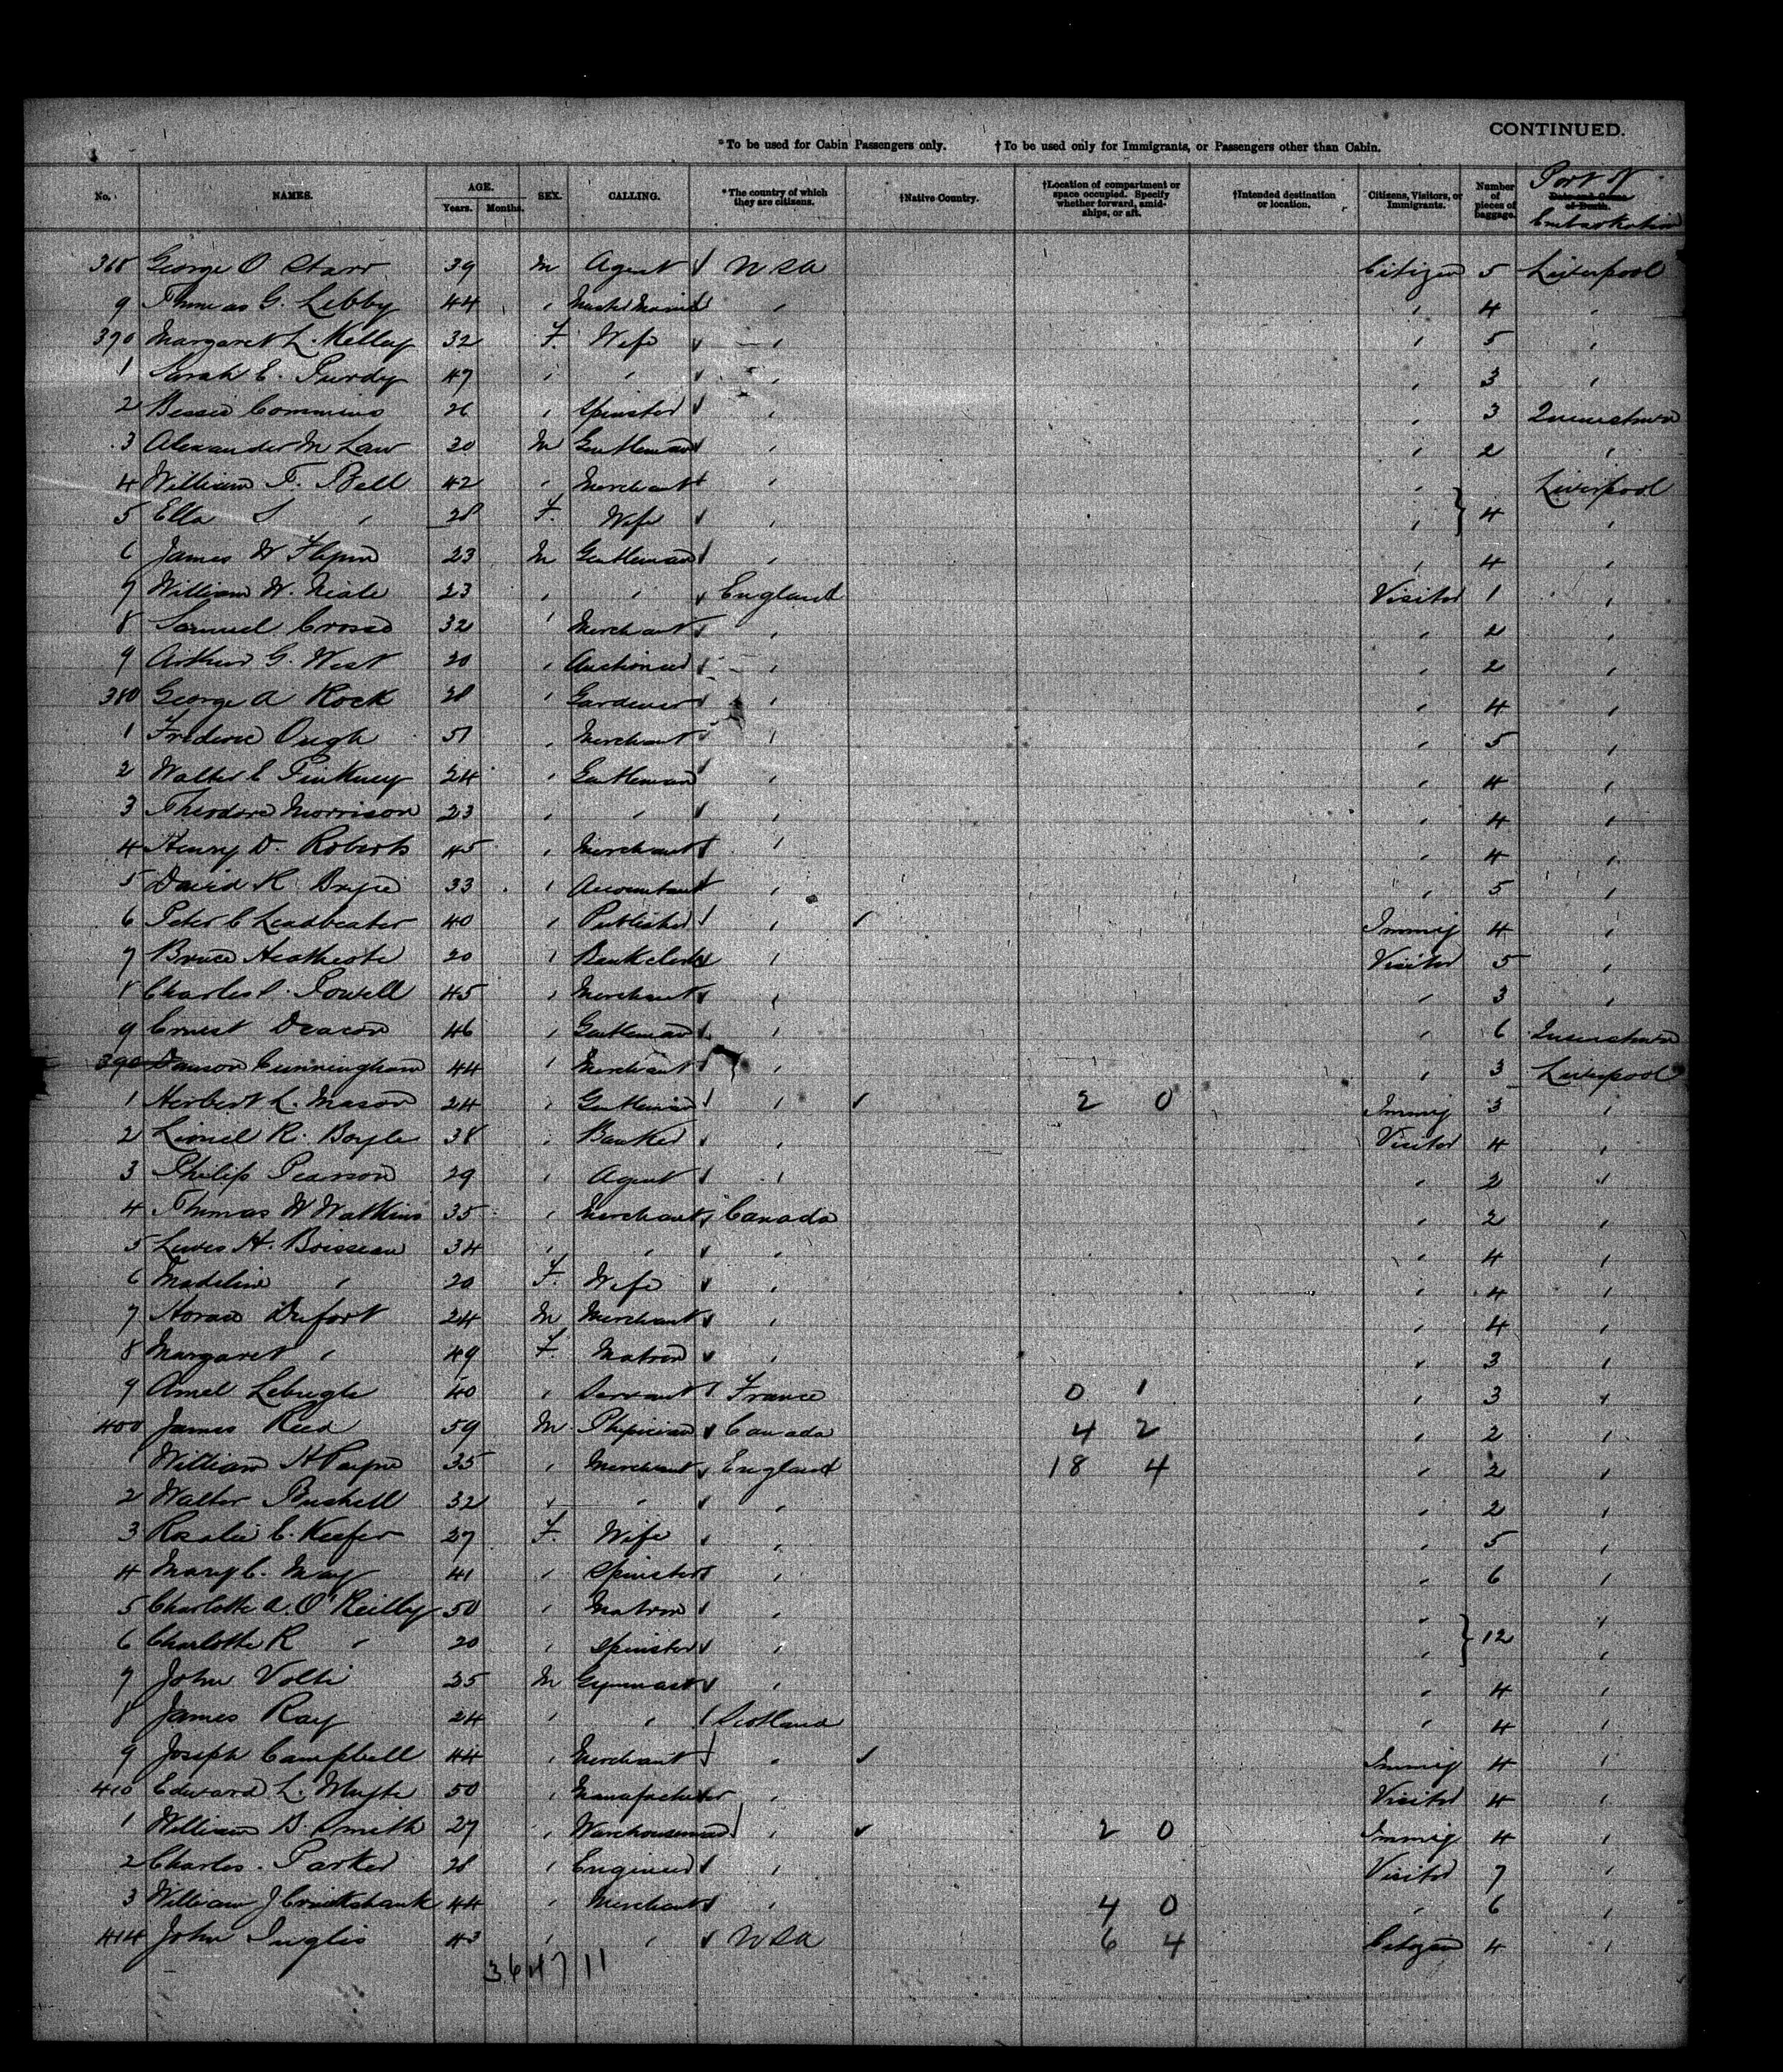 CONTINUED.
*To be used for Cabin Passengers only. †To be used only for Immigrants, or Passengers other than Cabin.
No. NAMES. AGE. Years. Months. SEX. CALLING. *The country of which they are citizens. †Native Country. †Location of compartment or space occupied. Specify whether forward, amidships, or aft. †Intended destination or location. Citizens, Visitors, or Immigrants. Number of pieces of baggage. Date and Cause of Death. Port of Embarkation
368 George O Starr 39 M Agent USA Citizen 5 Liverpool
9 Thomas G. Libby 44 " " " 4 "
370 Margaret L. Kelley 32 F. Wife " " 5 "
1 Sarah E. Purdy 47 " " " " 3 "
2 Bessie Commins 26 " Spinster " " 3 Queenstown
3 Alexander M Law 30 M Gentleman " " 2 "
4 William F. Bell 42 " Merchant " " Liverpool
5 Ella S " 28 F. Wife " " } 4 "
6 James W Flynn 23 M Gentleman " " 4 "
7 William W. Neale 23 " " England Visitor 1 "
8 Samuel Cross 32 " Merchant " " 2 "
9 Arthur G. West 20 " Auctioneer " " 2 "
380 George A Rock 28 " Gardener " " 4 "
1 Frederic Ough 51 " Merchant " " 5 "
2 Walter E Pinkney 24 " Gentleman " " 4 "
3 Theodore Morrison 23 " " " " 4 "
4 Henry D. Roberts 45 " Merchant " " 4 "
5 David K 33 " Accountant " " 5 "
6 Peter C Leadbeater 40 " Publisher " Immig 4 "
7 Bruce Heathcote 20 " Bank clerk " Visitor 5 "
8 Charles Powell 45 " Merchant " " 3 "
9 Ernest Deacon 46 " Gentleman " " 6 Queenstown
390 Dawson Cunningham 44 " Merchant " " 3 Liverpool
1 Herbert L. Mason 24 " Gentleman " 2 0 Immig 3 "
2 Lionel R. Boyle 38 " Banker " Visitor 4 "
3 Philip Pearson 29 " Agent " " 2 "
4 Thomas W Watkins 35 " Merchant Canada " 2 "
5 Lewis H. Boisseau 34 " " " " 4 "
6 Madeline " 20 F. Wife " " 4 "
7 Horace Dufort 24 M Merchant " " 4 "
8 Margaret " 49 F. Matron " " 3 "
9 Amel 40 " Servant France 0 1 " 3 "
400 James Reed 59 M Physician Canada 4 2 " 2 "
1 William H Payne 35 " Merchant England 18 4 " 2 "
2 Walter Bushell 32 " " " " 2 "
3 Rosalie C. Keefer 27 F. Wife " " 5 "
4 Mary C. May 41 " Spinster " " 6 "
5 Charlotte A. O'Reilly 50 " Matron " " "
6 Charlotte R " 20 " Spinster " " } 12 "
7 John Volti 25 M Gymnast " " 4 "
8 James Ray 24 " " Scotland " 4 "
9 Joseph Campbell 44 " Merchant " Immig 4 "
410 Edward L. Whyte 50 " Manufacturer " Visitor 4 "
1 William B. Smith 27 " Warehouseman " 2 0 Immig 4 "
2 Charles Parker 28 " Engineer " Visitor 7 "
3 William J Cruickshank 44 " Merchant " 4 0 " 6 "
414 John Inglis 43 " " USA 6 4 Citizen 4 "
36 47 11